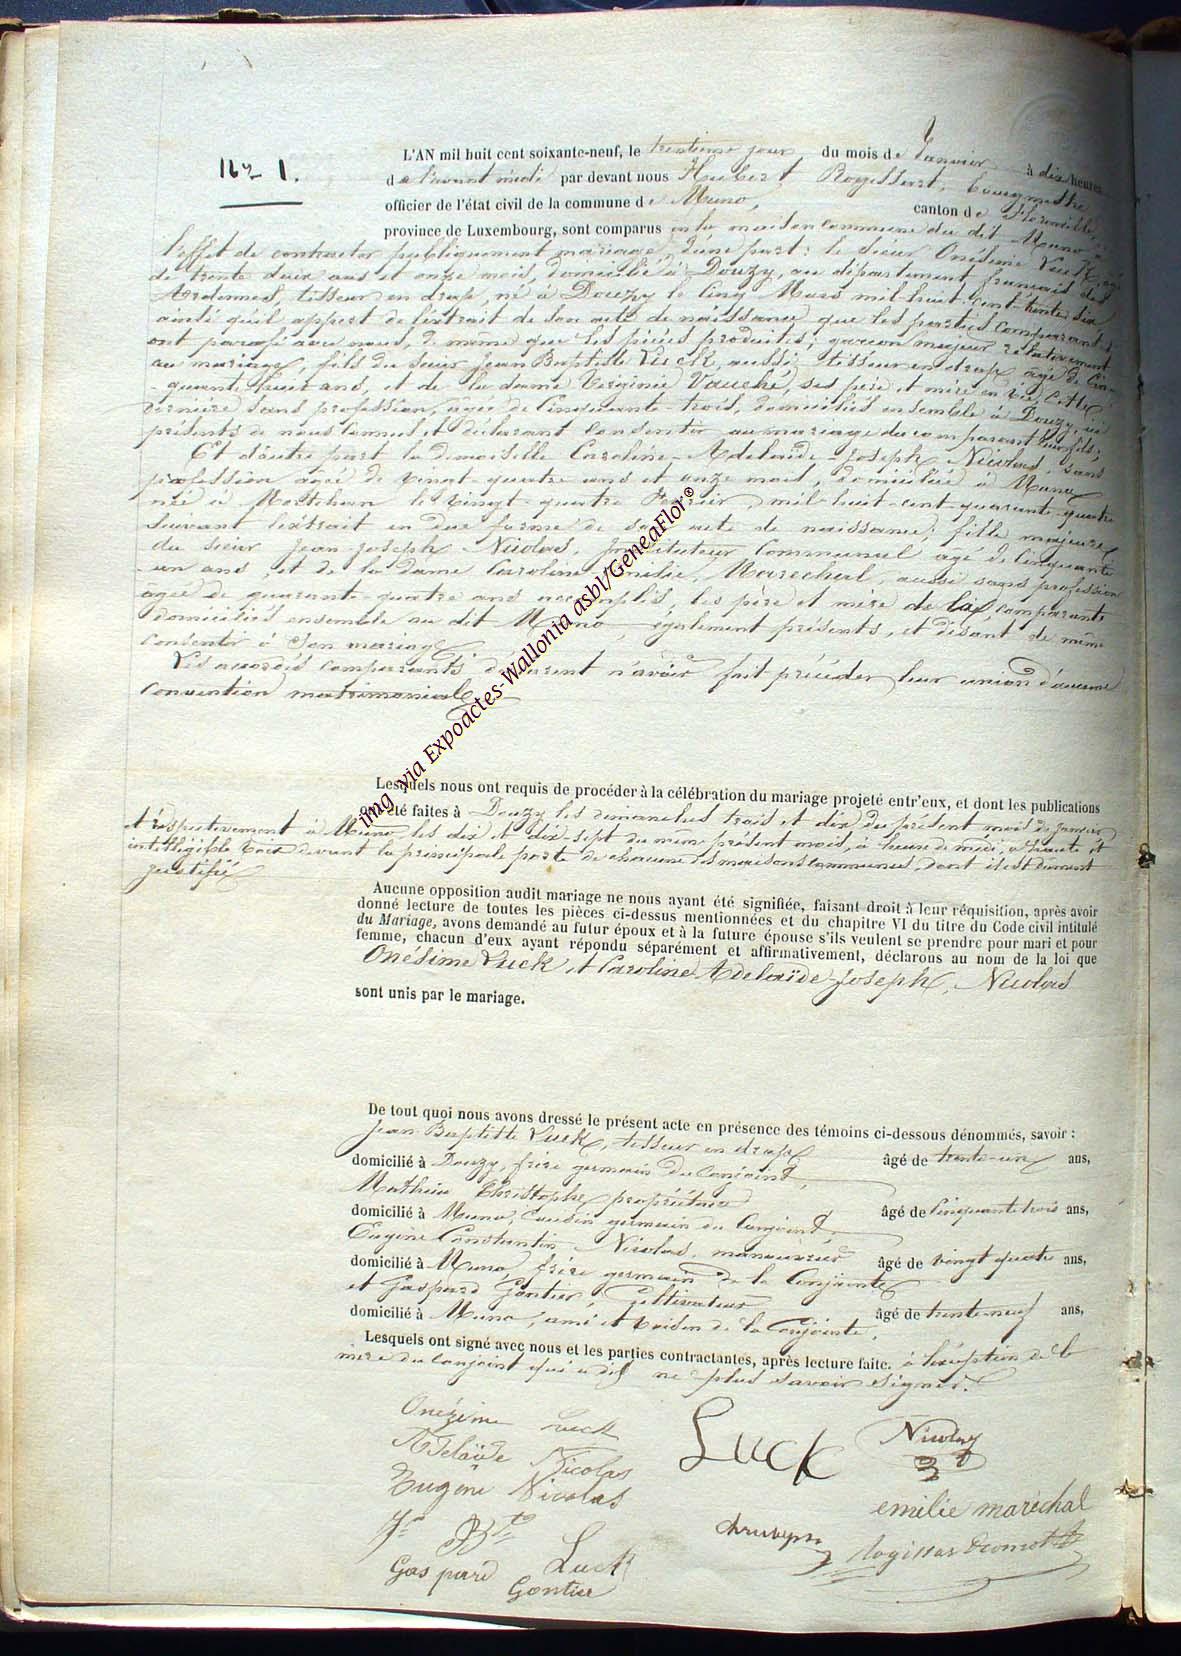 N° 1.
L'AN mil huit cent soixante-neuf, le trentième jour du mois de Janvier à dix heures
de l'avant midi par devant nous Hubert Rogissart, bourgmestre
officier de l'état civil de la commune de Muno, canton de Florenville,
province de Luxembourg, sont comparus en la maison commune du dit Muno à
l'effet de contracter publiquement mariage, d'une part: le sieur Onésime Luck, âgé
de trente deux ans et onze mois, domicilié à Douzy, au département français des
Ardennes, tisseur en drap, né à Douzy le cinq Mars mil-huit-cent-trente six
ainsi qu'il appert de l'extrait de son acte de naissance que les parties comparantes
ont parafé avec nous, de même que les pièces produites; garçon majeur relativement
au mariage, fils du sieur Jean Baptiste Luck, aussi tisseur en drap âgé de cin-
-quante huit ans, et de la dame Virginie Vauché, ses père et mère en vie, cette
dernière sans profession, âgée de cinquante-trois, domiciliés ensemble à Douzy, ici
présents de nous connus et déclarant consentir au mariage du comparant leur fils;
Et d'autre part la demoiselle Caroline-Adelaïde-Joseph, Nicolas, sans
profession âgée de vingt-quatre ans et onze mois, domiciliée à Muno
née à le vingt-quatre Février, mil-huit-cent-quarante-quatre
suivant l'extrait en due forme de son acte de naissance; fille majeure
du sieur Jean-Joseph Nicolas, Instituteur communal âgé de cinquante
-un ans, et de la dame Caroline-Emilie, Maréchal, aussi sans profession
âgée de quarante-quatre ans accomplis, les père et mère de la comparante
domiciliés ensemble au dit Muno, également présents, et disant de même
consentir à son mariage.
Les comparants déclarent n'avoir fait précéder leur union d'aucune
convention matrimoniale.
Lesquels nous ont requis de procéder à la célébration du mariage projeté entr'eux, et dont les publications
ont été faites à Douzy les dimanches trois et dix du présent mois de Janvier
et respectivement à Muno les dix et dix sept du même présent mois, à heure de midi, à haute et
intelligible voix devant la principale porte de chacune des maisons communes, dont il est dûment
justifié
Aucune opposition audit mariage ne nous ayant été signifiée, faisant droit à leur réquisition, après avoir
donné lecture de toutes les pièces ci-dessus mentionnées et du chapitre VI du titre du Code civil intitulé
du Mariage, avons demandé au futur époux et à la future épouse s'ils veulent se prendre pour mari et pour
femme, chacun d'eux ayant répondu séparément et affirmativement, déclarons au nom de la loi que
Onésime Luck et Caroline Adelaïde-Joseph, Nicolas
sont unis par le mariage.
De tout quoi nous avons dressé le présent acte en présence des témoins ci-dessous dénommés, savoir :
Jean Baptiste Luck, tisseur en drap
domicilié à Douzy, frère germain du conjoint, âgé de trente-un ans,
Mathieu Christophe, propriétaire
domicilié à Muno, cousin germain du conjoint, âgé de cinquante trois ans,
Eugène Constantin Nicolas, manœuvrier
domicilié à Muno, frère germain de la conjointe âgé de vingt quatre ans,
et Gaspard Gontier, cultivateur
domicilié à Muno, ami et voisin de la conjointe. âgé de trente-neuf ans,
Lesquels ont signé avec nous et les parties contractantes, après lecture faite. à l'exception de la
mère du conjoint qui a dit ne plus savoir signer.
Onézime Luck
Adelaïde Nicolas
Luck
Nicolas
Eugène Nicolas
emilie maréchal
Jn Bte Luck
Gaspard Gontier
img via Expoactes-Wallonia asbl/GeneaFlor®